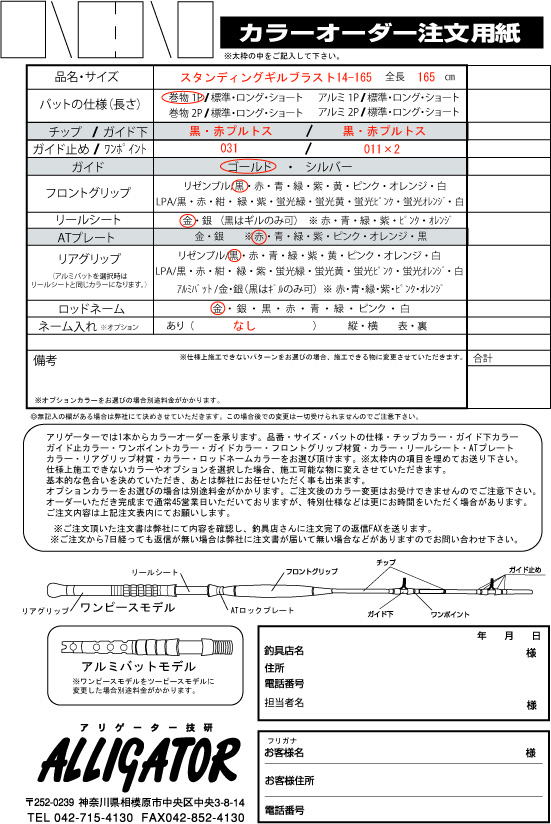 カラーオーダー注文用紙
※太枠の中をご記入して下さい。
品名・サイズ スタンディングギルブラスト14-165 全長 165 ㎝
バットの仕様(長さ) 巻物 1P/標準・ロング・ショート アルミ 1P/標準・ロング・ショート
巻物 2P/標準・ロング・ショート アルミ 2P/標準・ロング・ショート
チップ / ガイド下 黒・赤プルトス / 黒・赤プルトス
ガイド止め / ワンポイント 031 / 011×2
ガイド ゴールド ・ シルバー
フロントグリップ リゼンブル/黒・赤・青・緑・紫・黄・ピンク・オレンジ・白
LPA/黒・赤・紺・緑・紫・蛍光緑・蛍光黄・蛍光ピンク・蛍光オレンジ・白
リールシート 金・銀 (黒はギルのみ可) ※ 赤・青・緑・紫・ピンク・オレンジ
ATプレート 金・銀 ※赤・青・緑・紫・ピンク・オレンジ・黒
リアグリップ リゼンブル/黒・赤・青・緑・紫・黄・ピンク・オレンジ・白
(アルミバットを選択時は LPA/黒・赤・紺・緑・紫・蛍光緑・蛍光黄・蛍光ピンク・蛍光オレンジ・白
リールシートと同じカラーになります。) アルミバット/金・銀(黒はギルのみ可) ※ 赤・青・緑・紫・ピンク・オレンジ
ロッドネーム 金・銀・黒・赤・青・緑・ピンク・白
ネーム入れ ※オプション あり ( なし ) 縦・横 表・裏
備考 ※仕様上施工できないパターンをお選びの場合、施工できる物に変更させていただきます。 合計
※オプションカラーをお選びの場合別途料金がかかります。
◎無記入の欄がある場合は弊社にて決めさせていただきます。この場合後での変更は一切受けられませんのでご注意下さい。
アリゲーターでは1本からカラーオーダーを承ります。品番・サイズ・バットの仕様・チップカラー・ガイド下カラー
ガイド止カラー・ワンポイントカラー・ガイドカラー・フロントグリップ材質・カラー・リールシート・ATプレート
カラー・リアグリップ材質・カラー・ロッドネームカラーをお選び頂けます。※太枠内の項目を埋めてお送り下さい。
仕様上施工できないカラーやオプションを選択した場合、施工可能な物に変えさせていただきます。
基本的な色合いを決めていただき、あとは弊社にお任せいただく事も出来ます。
オプションカラーをお選びの場合は別途料金がかかります。ご注文後のカラー変更はお受けできませんのでご注意下さい。
オーダーいただき完成まで通常45営業日いただいておりますが、特別仕様などは更にお時間をいただく場合があります。
ご注文内容は上記注文表内にてお願いします。
※ご注文頂いた注文書は弊社にて内容を確認し、釣具店さんに注文完了の返信FAXを送ります。
※ご注文から7日経っても返信が無い場合は弊社に注文書が届いて無い場合などがありますのでお問い合わせ下さい。
リールシート フロントグリップ チップ ガイド止め
リアグリップ ワンピースモデル ATロックプレート ガイド下 ワンポイント
アルミバットモデル
※ワンピースモデルをツーピースモデルに
変更した場合別途料金がかかります。
年 月 日
釣具店名 様
住所
電話番号
担当者名 様
アリゲーター技研
ALLIGATOR
〒252-0239 神奈川県相模原市中央区中央3-8-14
TEL 042-715-4130 FAX042-852-4130
フリガナ
お客様名 様
お客様住所
電話番号